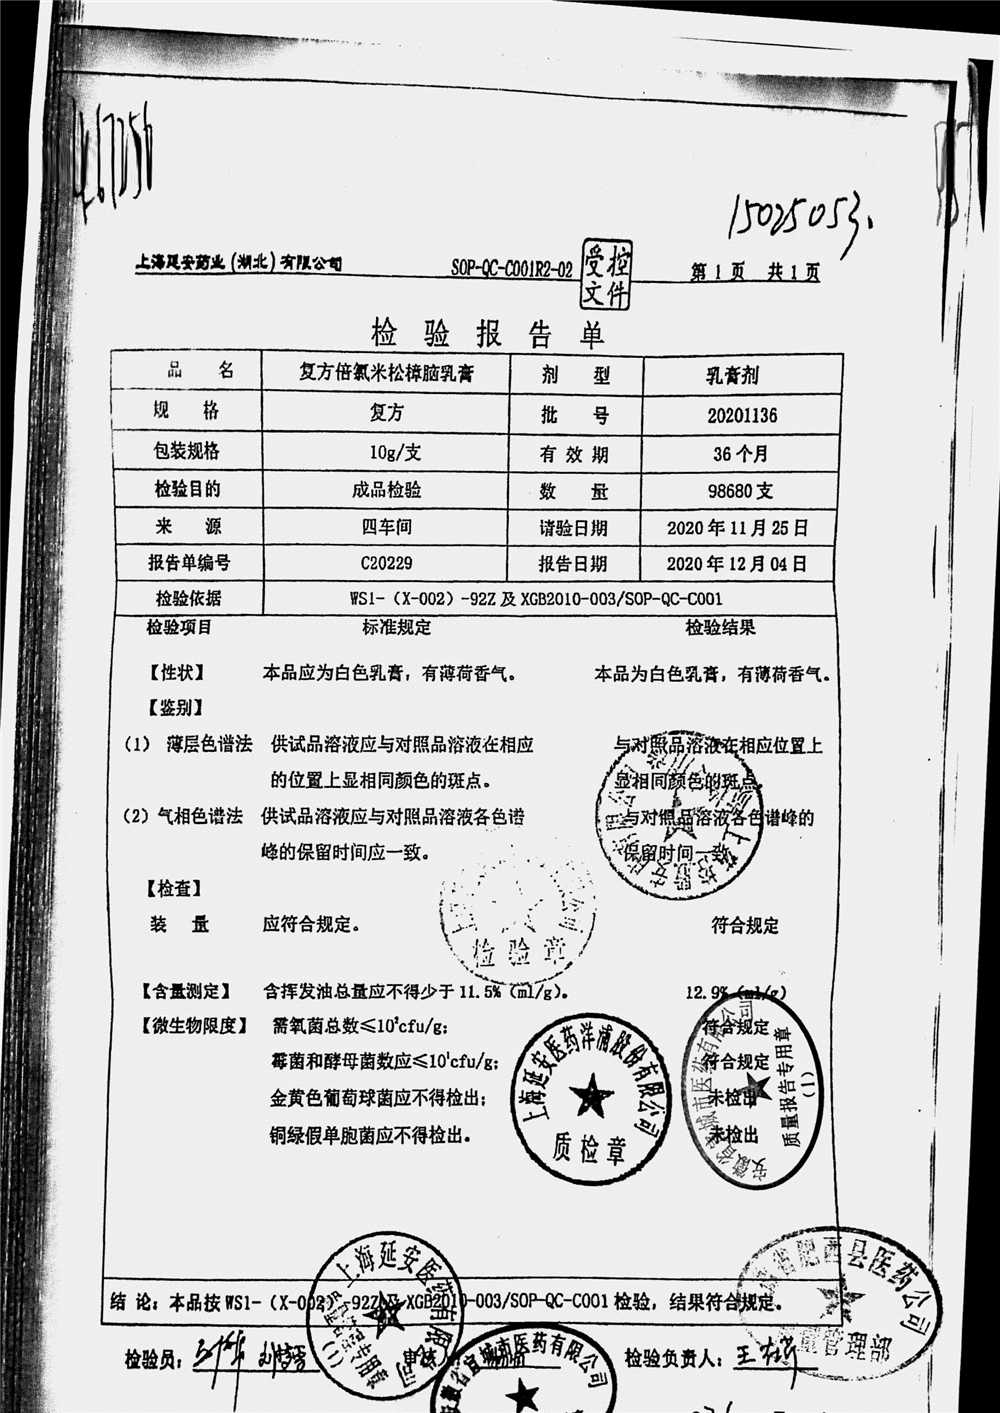 467256
15025053.
上海延安药业(湖北)有限公司 SOP-QC-C001R2-02 受控文件 第1页 共1页
检验报告单
品 名 复方倍氯米松樟脑乳膏 剂 型 乳膏剂
规 格 复方 批 号 20201136
包装规格 10g/支 有效期 36个月
检验目的 成品检验 数 量 98680支
来 源 四车间 请验日期 2020年11月25日
报告单编号 C20229 报告日期 2020年12月04日
检验依据 WS1-(X-002)-92Z及XGB2010-003/SOP-QC-C001
检验项目 标准规定 检验结果
【性状】 本品应为白色乳膏，有薄荷香气。 本品为白色乳膏，有薄荷香气。
【鉴别】
(1) 薄层色谱法 供试品溶液应与对照品溶液在相应 与对照品溶液在相应位置上
的位置上显相同颜色的斑点。 显相同颜色的斑点
(2)气相色谱法 供试品溶液应与对照品溶液各色谱 与对照品溶液各色谱峰的
峰的保留时间应一致。 保留时间一致
【检查】
装 量 应符合规定。 符合规定
检验章
【含量测定】 含挥发油总量应不得少于11.5%(ml/g)。 12.9%(ml/g)
【微生物限度】 需氧菌总数≤10²cfu/g; 符合规定
霉菌和酵母菌数应≤10¹cfu/g; 符合规定
金黄色葡萄球菌应不得检出; 未检出
铜绿假单胞菌应不得检出。 未检出
上海延安医药洋浦股份有限公司
质检章
安徽省宣城市医药有限公司
质量报告专用章
(1)
上海延安医药有限公司
(1)
肥西县医药公司
管理部
结 论: 本品按WS1-(X-002)-92Z及XGB2010-003/SOP-QC-C001检验，结果符合规定。
检验员: 审核人: 检验负责人:
安徽省宣城市医药有限公司